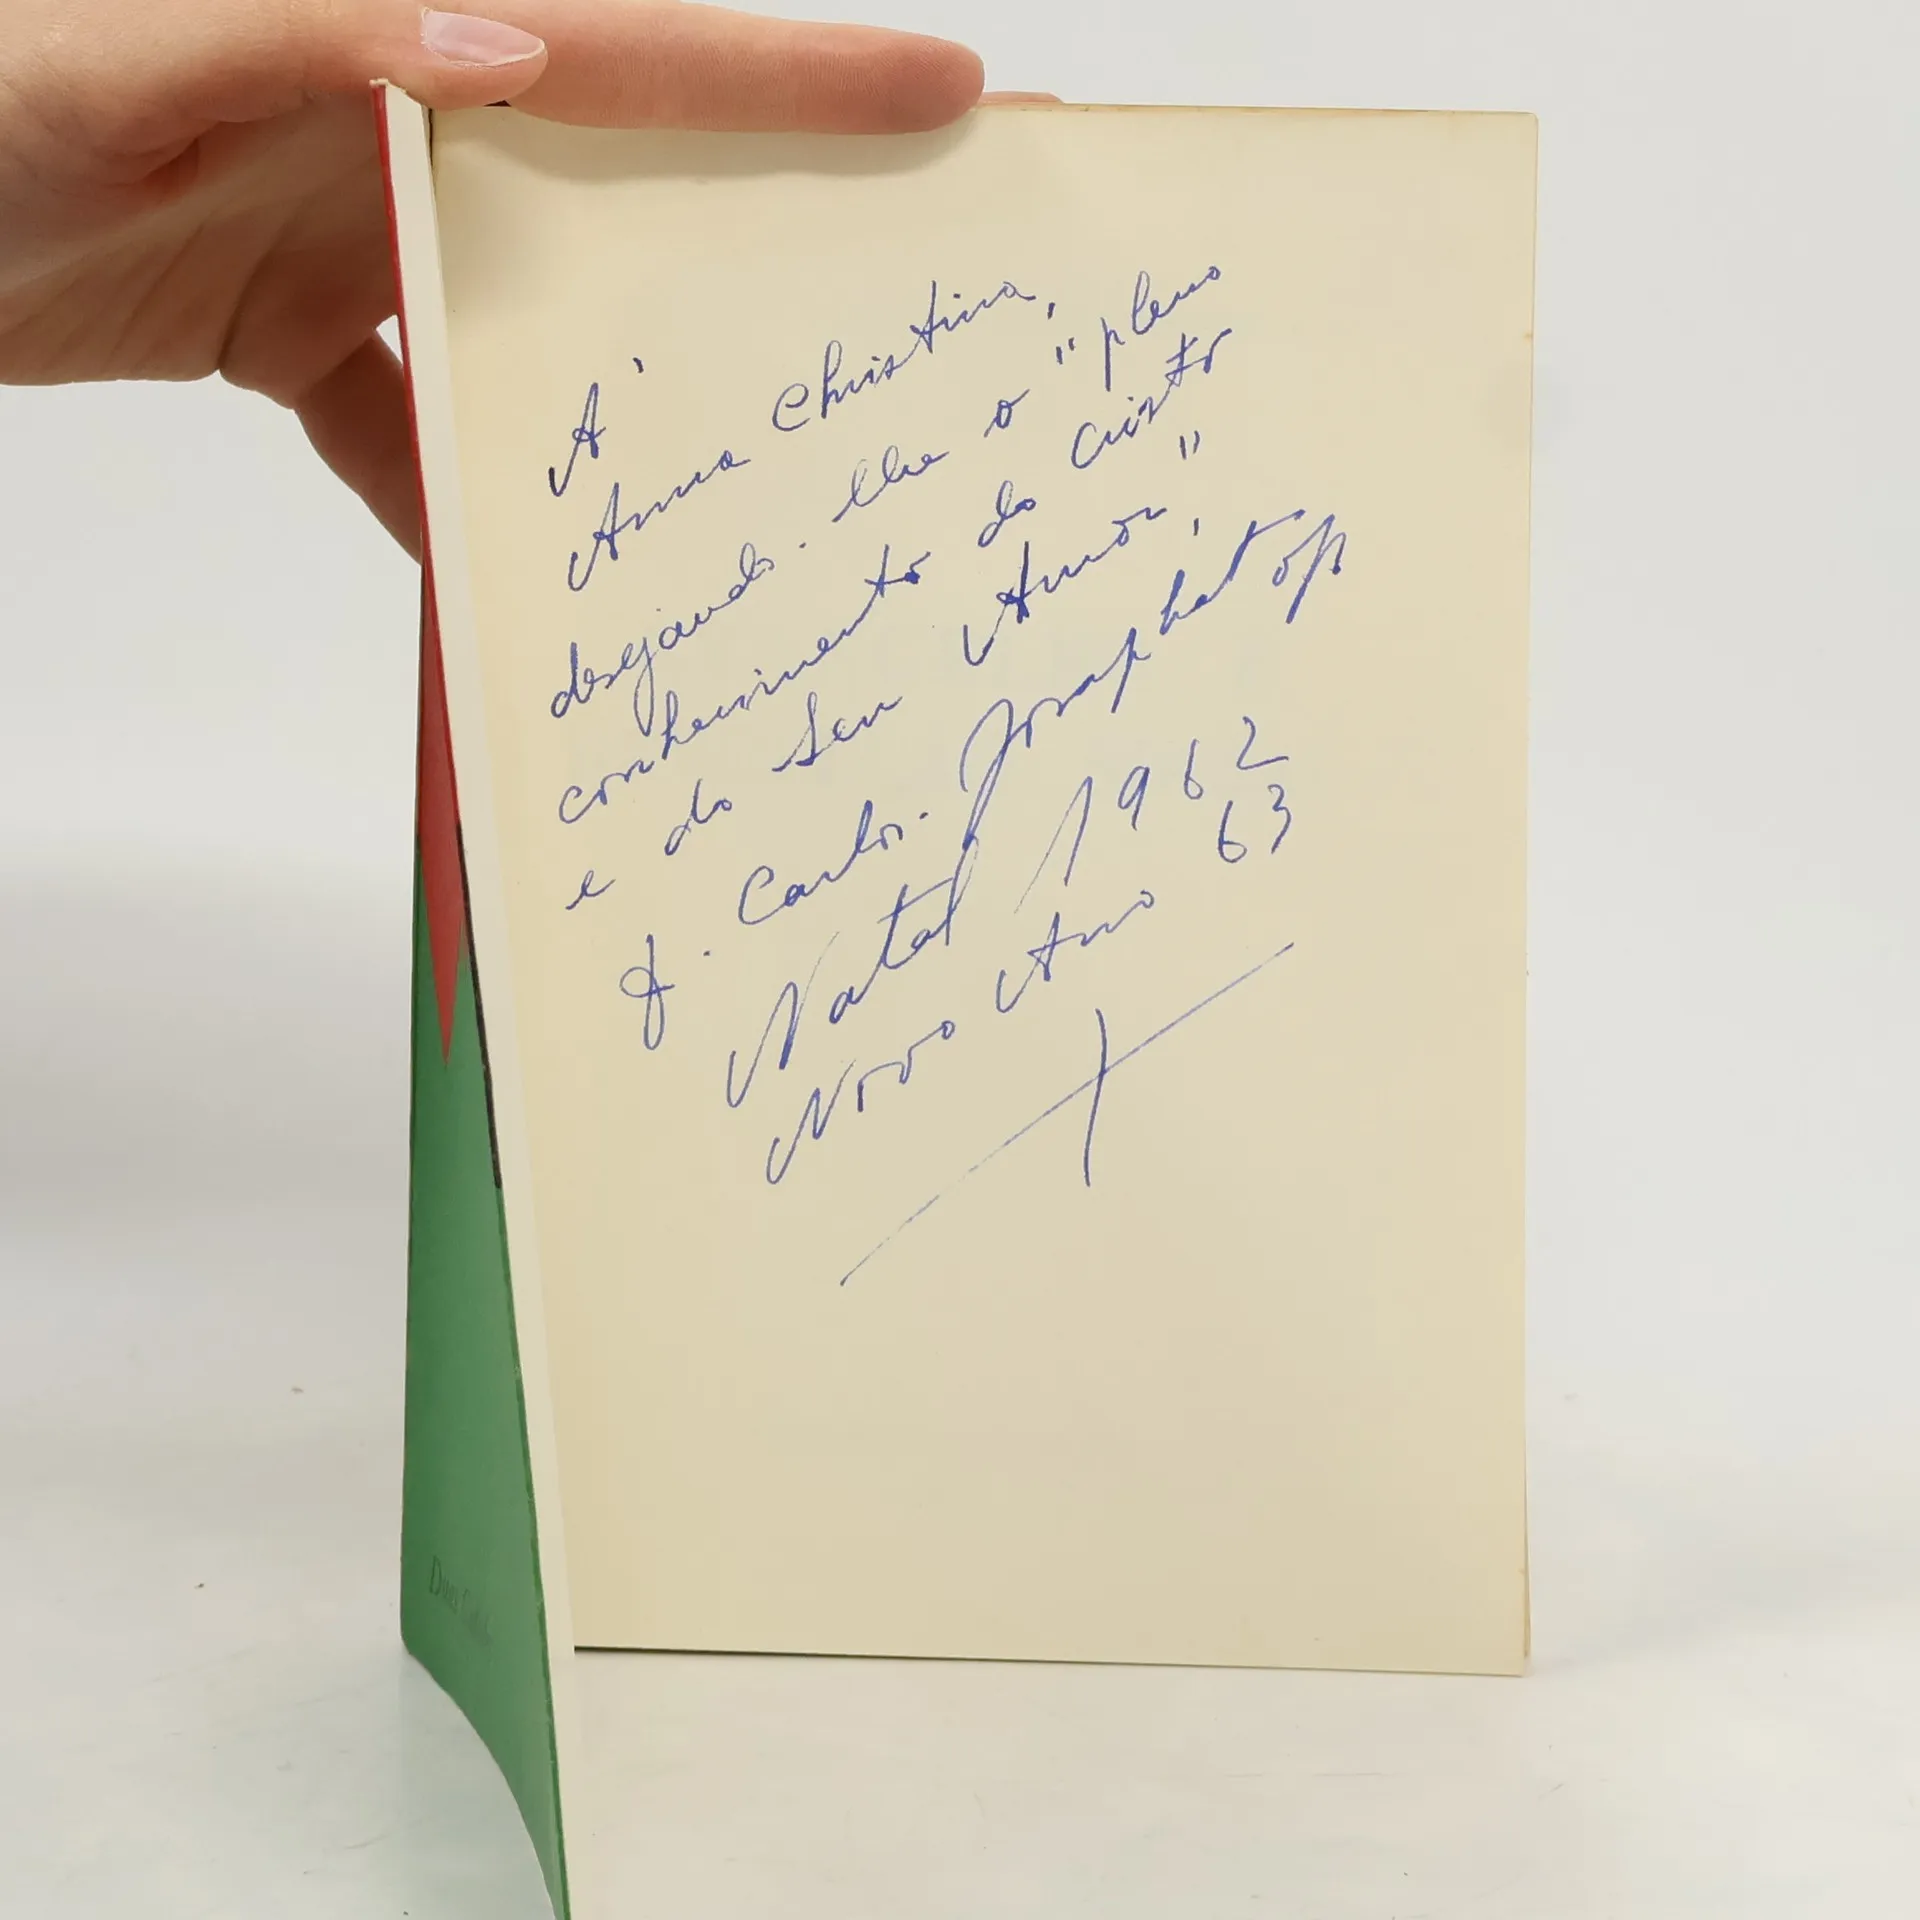 A'
Anna Christina,
desejando-lhe o "pleno
conhecimento do Cristo
e do Seu Amor",
f. Carlos-Josaphat op
Natal 1962
Novo Ano 63
Duas Cid